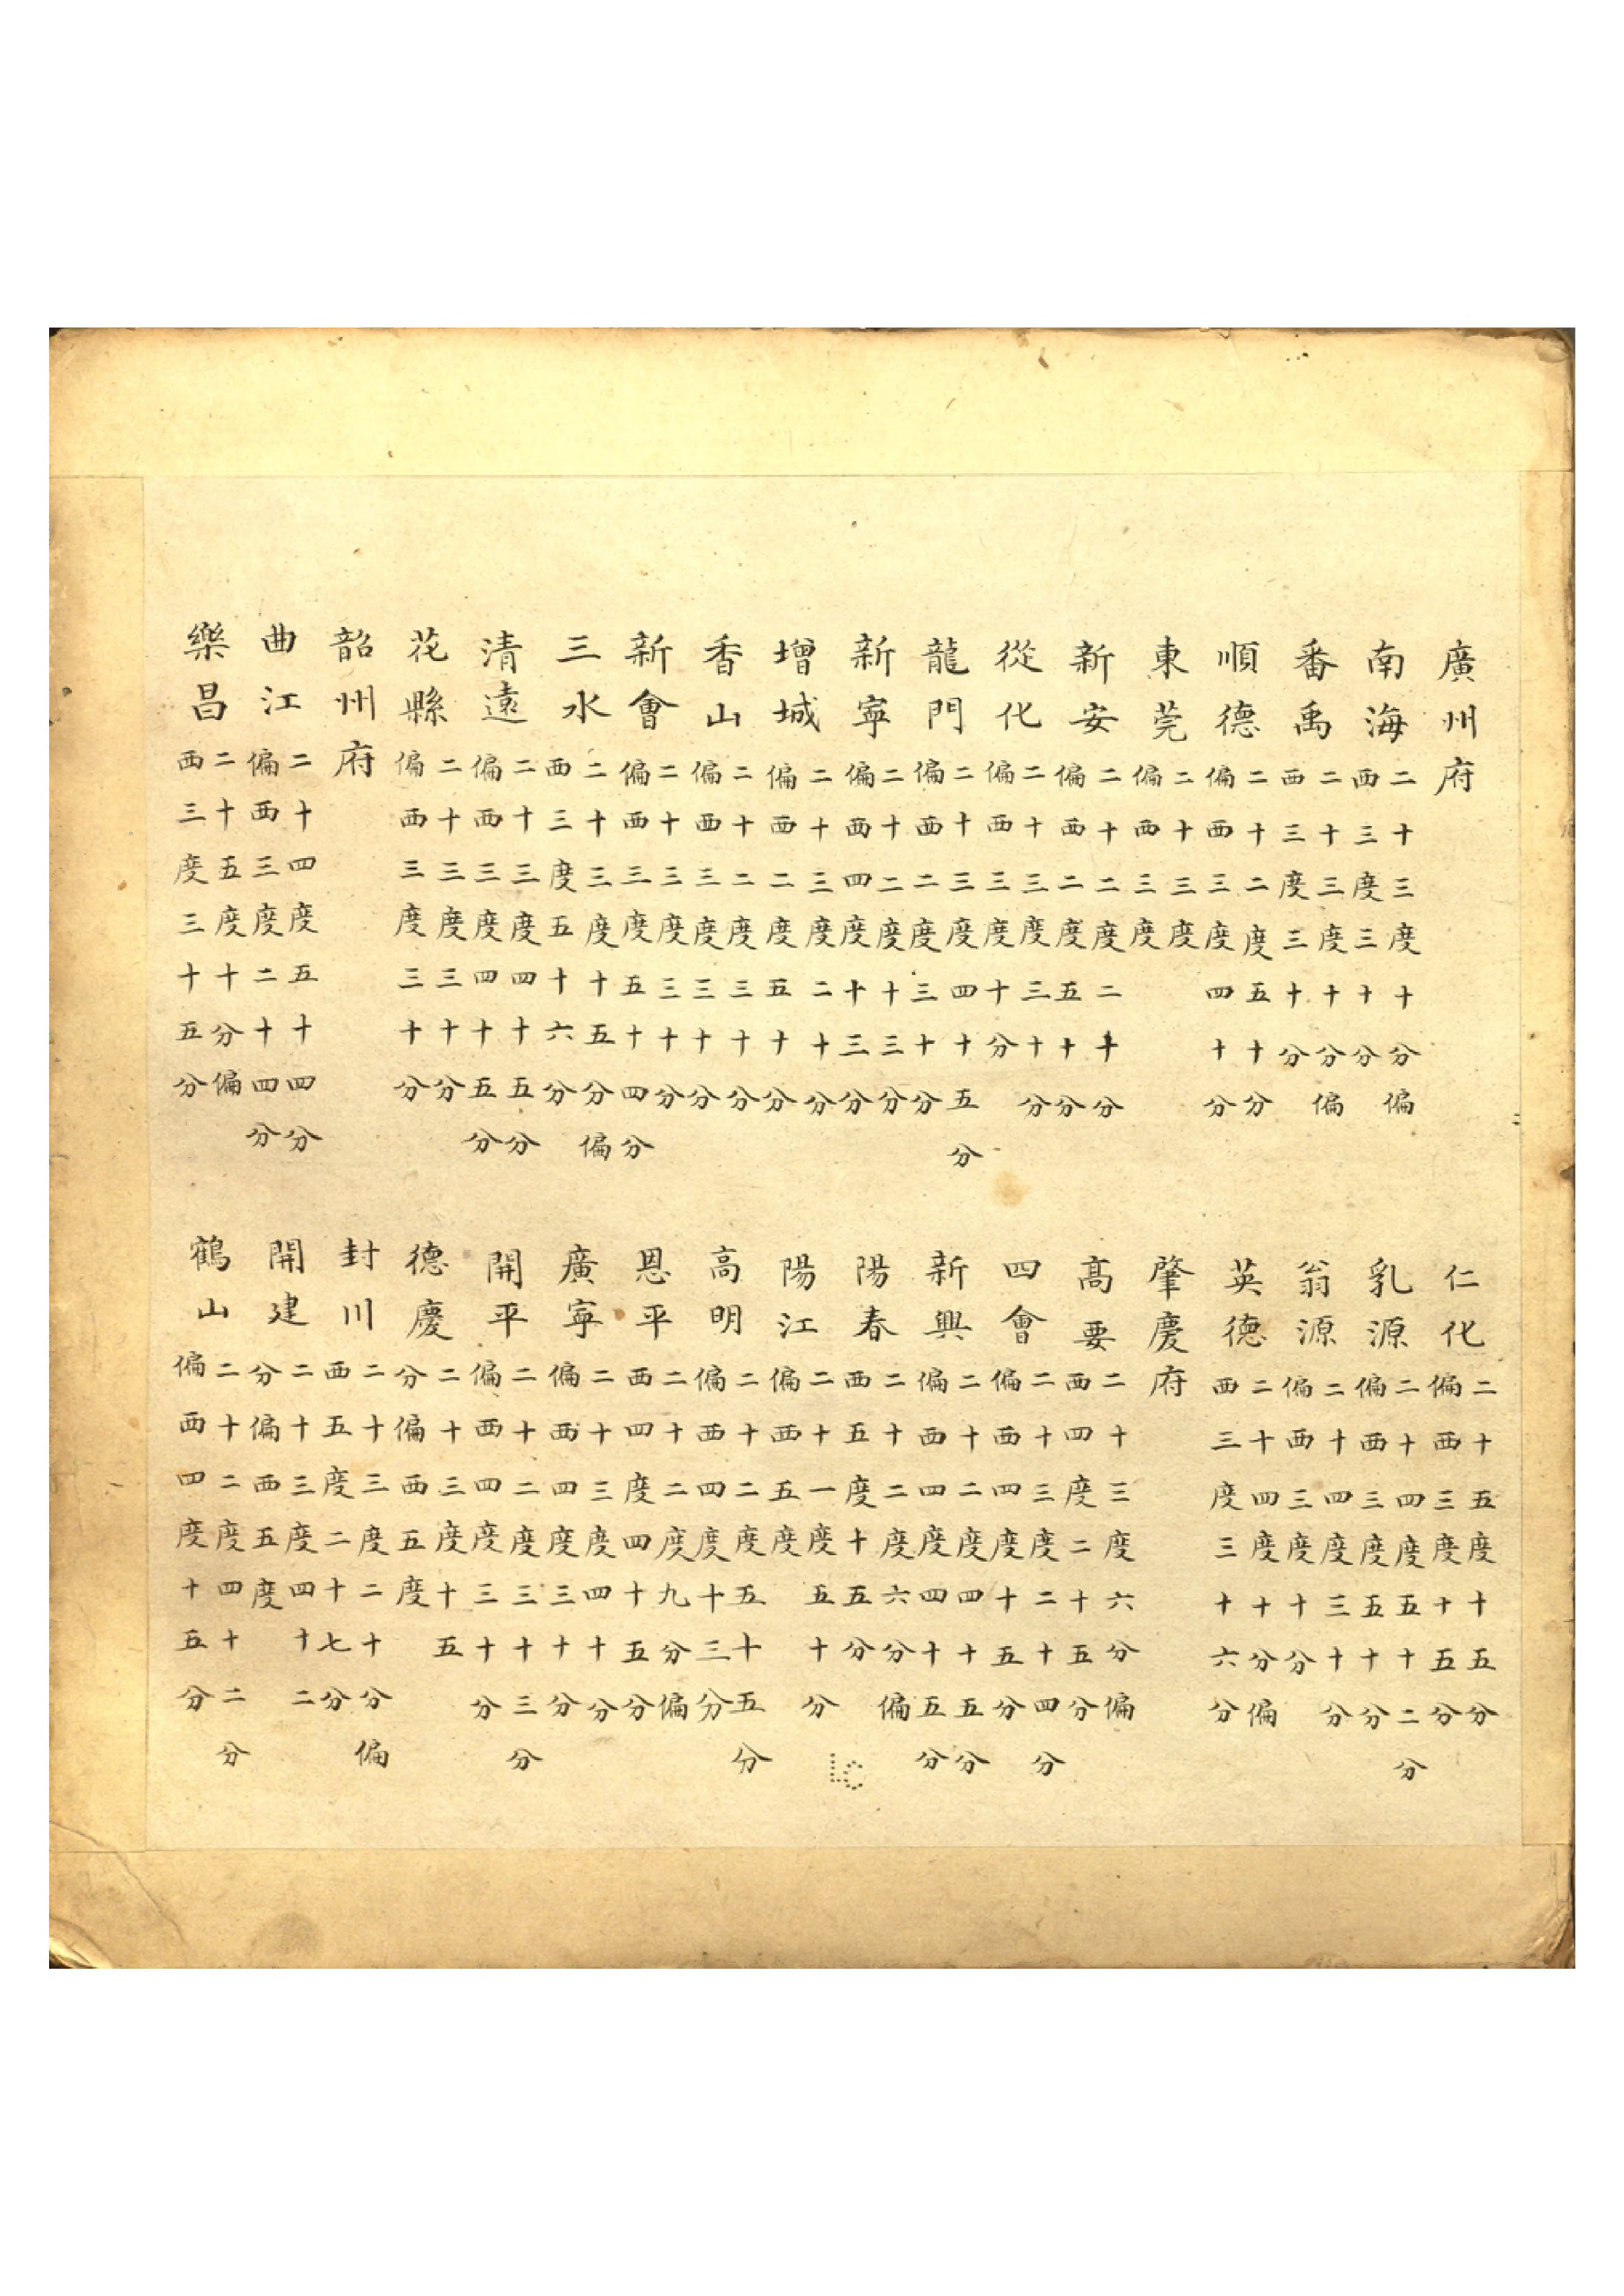 廣州府
南海
二十三度十分偏
西三度三十分
番禹
二十三度十分偏
西三度三十分
順德
二十二度五十分
偏西三度四十分
東莞
二十三度
偏西三度
新安
二十二度二十分
偏西二度五十分
從化
二十三度三十分
偏西三度十分
龍門
二十三度四十五分
偏西二度三十分
新寧
二十二度十三分
偏西四度十三分
增城
二十三度二十分
偏西二度五十分
香山
二十二度三十分
偏西三度三十分
新會
二十三度三十分
偏西三度五十四分
三水
二十三度十五分偏
西三度五十六分
清遠
二十三度四十五分
偏西三度四十五分
花縣
二十三度三十分
偏西三度三十分
韶州府
曲江
二十四度五十四分
偏西三度二十四分
樂昌
二十五度十分偏
西三度三十五分
仁化
二十五度十五分
偏西三度十五分
乳源
二十四度五十二分
偏西三度五十分
翁源
二十四度三十分
偏西三度十分
英德
二十四度十分偏
西三度三十六分
肇慶府
髙要
二十三度六分偏
西四度二十五分
四會
二十三度二十四分
偏西四度十五分
新興
二十二度四十五分
偏西四度四十五分
陽春
二十二度六分偏
西五度十五分
陽江
二十一度五十分
偏西五度
高明
二十二度五十五分
偏西四度十三分
恩平
二十二度九分偏
西四度四十五分
廣寧
二十三度四十分
偏西四度三十分
開平
二十二度三十三分
偏西四度三十分
德慶
二十三度十五
分偏西五度
封川
二十三度二十分偏
西五度二十七分
開建
二十三度四十二
分偏西五度
鶴山
二十二度四十二分
偏西四度十五分
LC